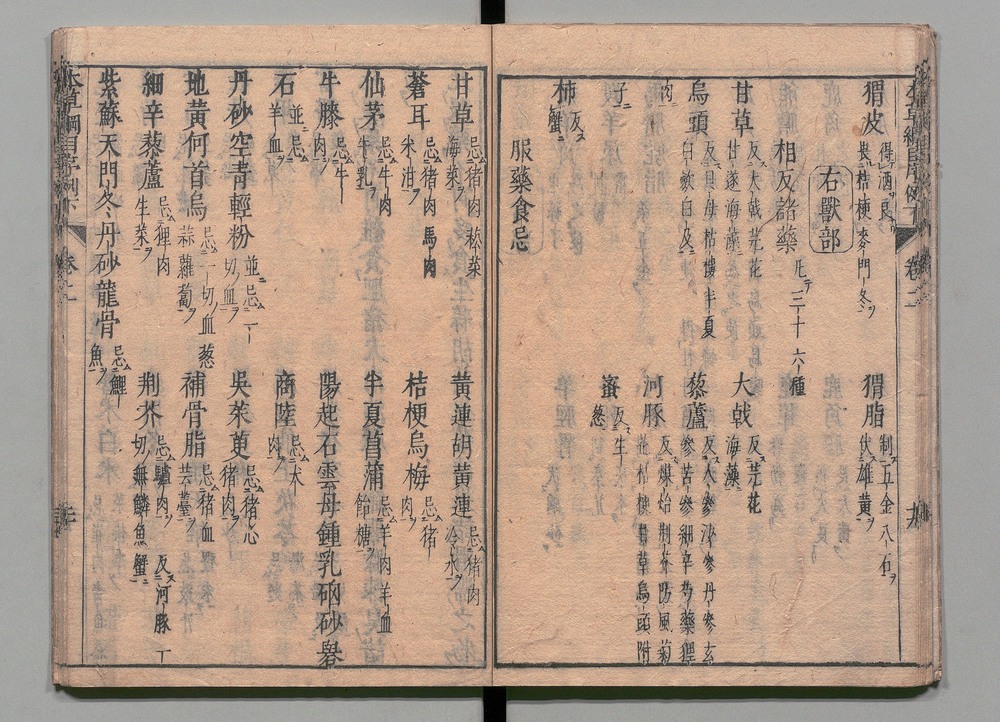 本草綱目序例下 卷之二
猬皮 得酒良 畏桔梗麥門冬 猬脂 制五金八石 伏雄黃
右獸部
相反諸藥 凡三十六種
甘草 反大戟芫花 甘遂海藻 大戟 反芫花 海藻
烏頭 反貝母栝樓半夏 白斂白及 藜蘆 反人參沙參丹參玄 參苦參細辛芍藥貍
肉 河豚 反煤炲荆芥防風菊 花桔梗甘草烏頭附
子 蜜 反生 葱
柿 反 蟹
服藥食忌
甘草 忌豬肉菘菜 海菜 黃連胡黃連 忌豬肉 冷水
蒼耳 忌豬肉馬肉 米泔 桔梗烏梅 忌豬 肉
仙茅 忌牛肉 牛乳 半夏菖蒲 忌羊肉羊血 飴糖
牛膝 忌牛 肉 陽起石雲母鍾乳硇砂礜
石 並忌 羊血 商陸 忌犬 肉
丹砂空青輕粉 並忌一 切血 吳茱萸 忌豬心 豬肉
地黃何首烏 忌一切血葱 蒜蘿蔔 補骨脂 忌豬血 芸薹
細辛藜蘆 忌貍肉 生菜 荆芥 忌驢肉反河豚一 切無鱗魚蟹
紫蘇天門冬丹砂龍骨 忌鯉 魚
本草綱目序例下 卷之二